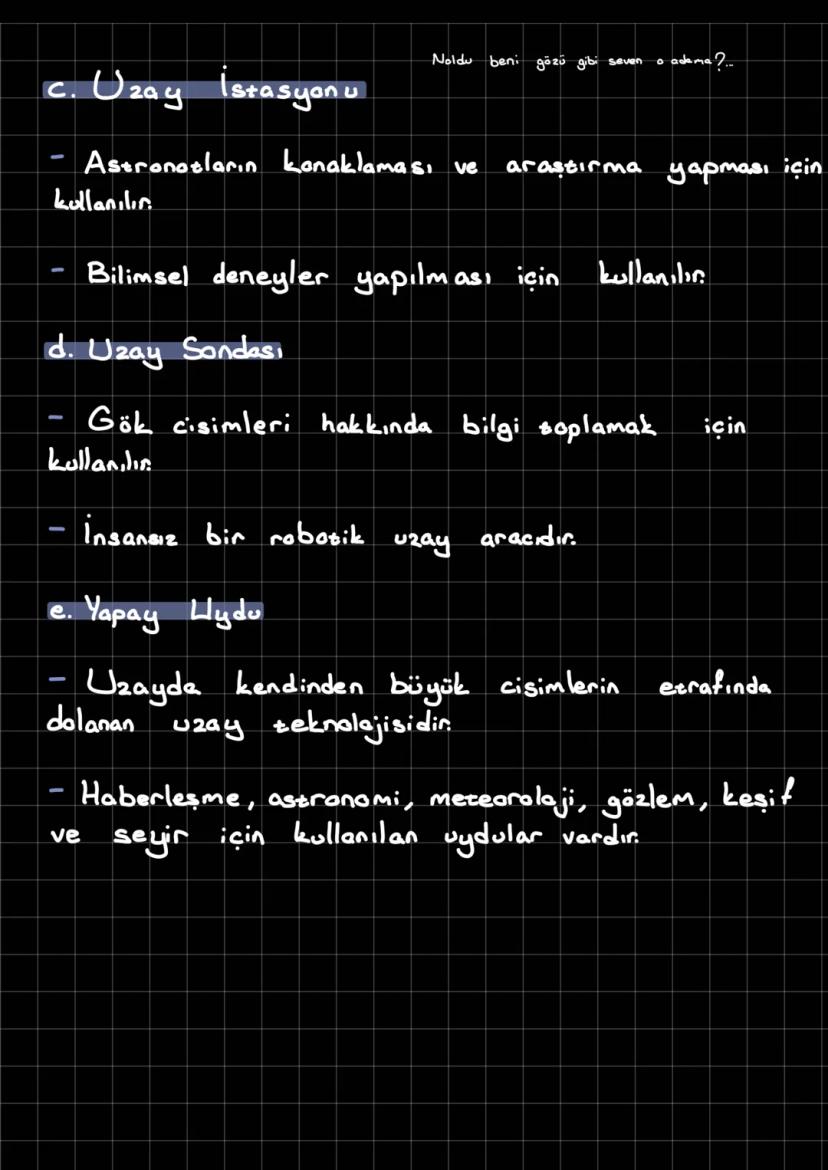 Noldu beni gözü gibi seven o adama?...
c. Uzay İstasyonu
- Astronotların konaklaması ve araştırma yapması için
kullanılır.
- Bilimsel deneyler yapılması için kullanılır.
d. Uzay Sondası
- Gök cisimleri hakkında bilgi toplamak için
kullanılır.
- İnsansız bir robotik uzay aracıdır.
e. Yapay Uydu
- Uzayda kendinden büyük cisimlerin etrafında
dolanan uzay teknolojisidir.
- Haberleşme, astronomi, meteoroloji, gözlem, keşif
ve seyir için kullanılan uydular vardır.